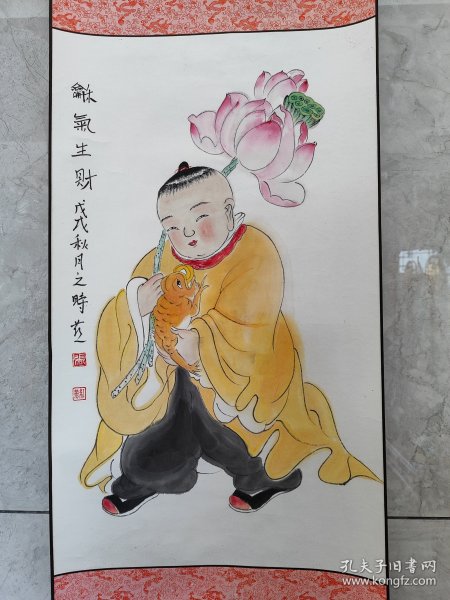 龢氣生财
戊戌秋月之時
孔夫子旧书网
www.kongfz.com